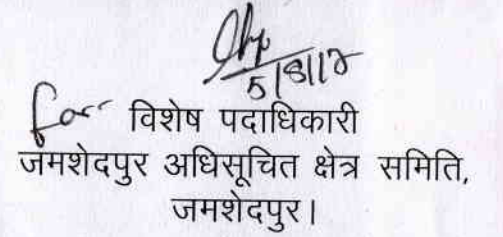 5/8/17
for विशेष पदाधिकारी
जमशेदपुर अधिसूचित क्षेत्र समिति,
जमशेदपुर।